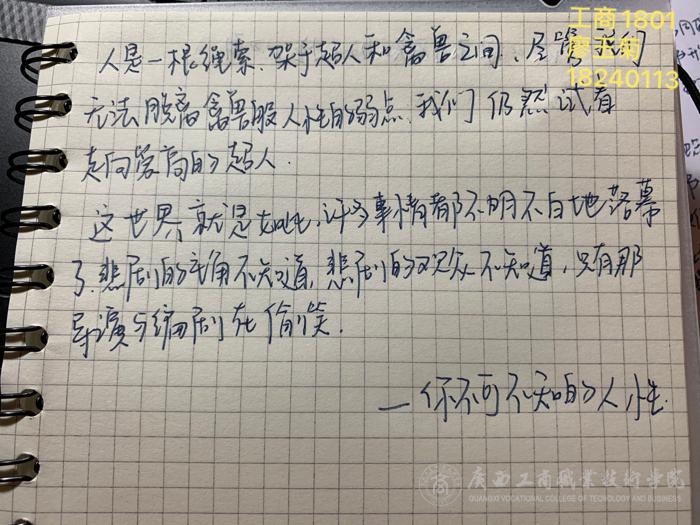 工商1801
廖玉菊
18240113
人是一根绳索、架于超人和禽兽之间、尽管我们
无法脱离禽兽般人性的弱点、我们仍然试着
走向崇高的超人.
这世界就是如此、许多事情都不明不白地落幕
了.悲剧的主角不知道,悲剧的观众不知道,只有那
导演与编剧在偷笑.
—你不可不知的人性.
广西工商职业技术学院
GUANGXI VOCATIONAL COLLEGE OF TECHNOLOGY AND BUSINESS